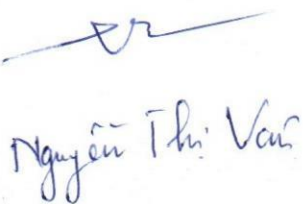 Nguyễn Thị Vân